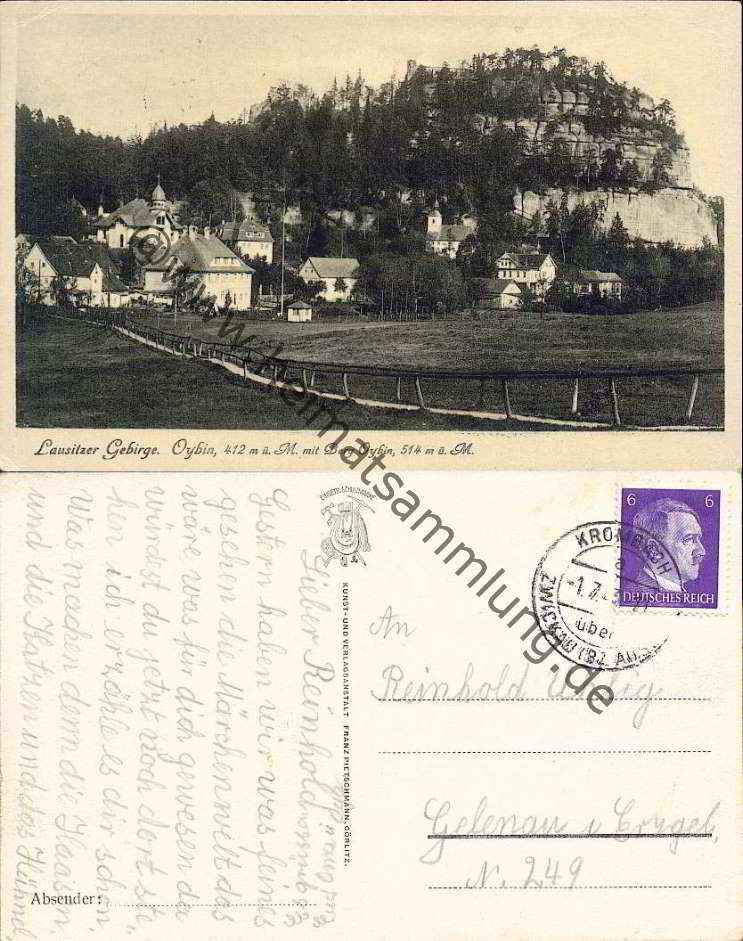 Lausitzer Gebirge. Oybin, 412 m ü. M. mit Berg Oybin, 514 m ü. M.
@ www.heimatsammlung.de
6 6
DEUTSCHES REICH
KROMBACH
über
ZWICKAU (BZ. AU
KUNST- UND VERLAGSANSTALT FRANZ PIETSCHMANN, GÖRLITZ.
Lieber Reinhold
Gestern haben wir was feines
gesehen die Märchenwelt das
wäre was für dich gewesen da
würdest du jetzt noch dort ste-
hen ich erzähle es dir schon,
Was machen denn du
und die Katzen und das
Absender:
An
Reinhold
Gelenau i Erzgeb,
N. 249